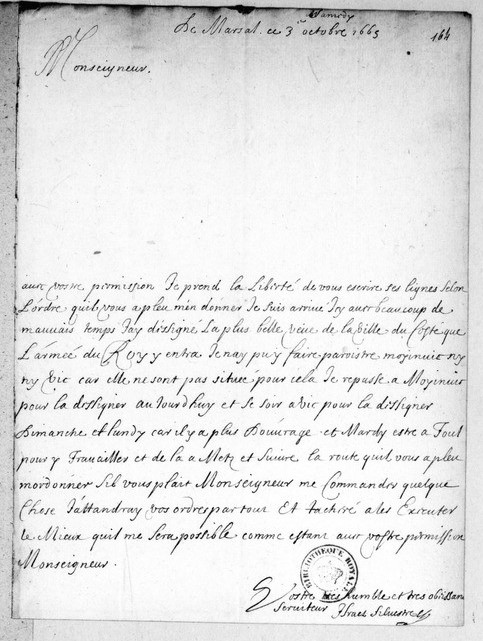 Samedy
De Marsal. ce 3e octobre 1665
164
Monseigneur.
avec vostre promission Je prend la Liberté de vous escrire ses lignes selon
L'ordre quil vous a pleu m'en donner Je suis arrivé Jcy avec beaucoup de
mauvais temps J'ay dissigné La plus belle veüe de la ville du Coste que
L'armée du Roy y entra Je nay pu y faire paroistre moyinuic ny
ny vic car elle ne sont pas situeé pour cela Je repasse a Moyinuic
pour la dissigner au Jourdhuy et se soir a vic pour la dissigner
Dimanche et lundy car il y a plus D'ouvrage et Mardy estre a Toul
pour y Travailler et de la a Metz et suivre la route quil vous a pleu
m'ordonner Sil vous plait Monseigneur me Commander quelque
Chose J'attandray vos ordres par tour Et tachiré a les Executer
le Mieux quil me sera possible comme estant avec vostre permission
Monseigneur.
BIBLIOTHEQUE ROYALE
Vostre tres humble et tres obeissant
serviteur Israel Silvestre